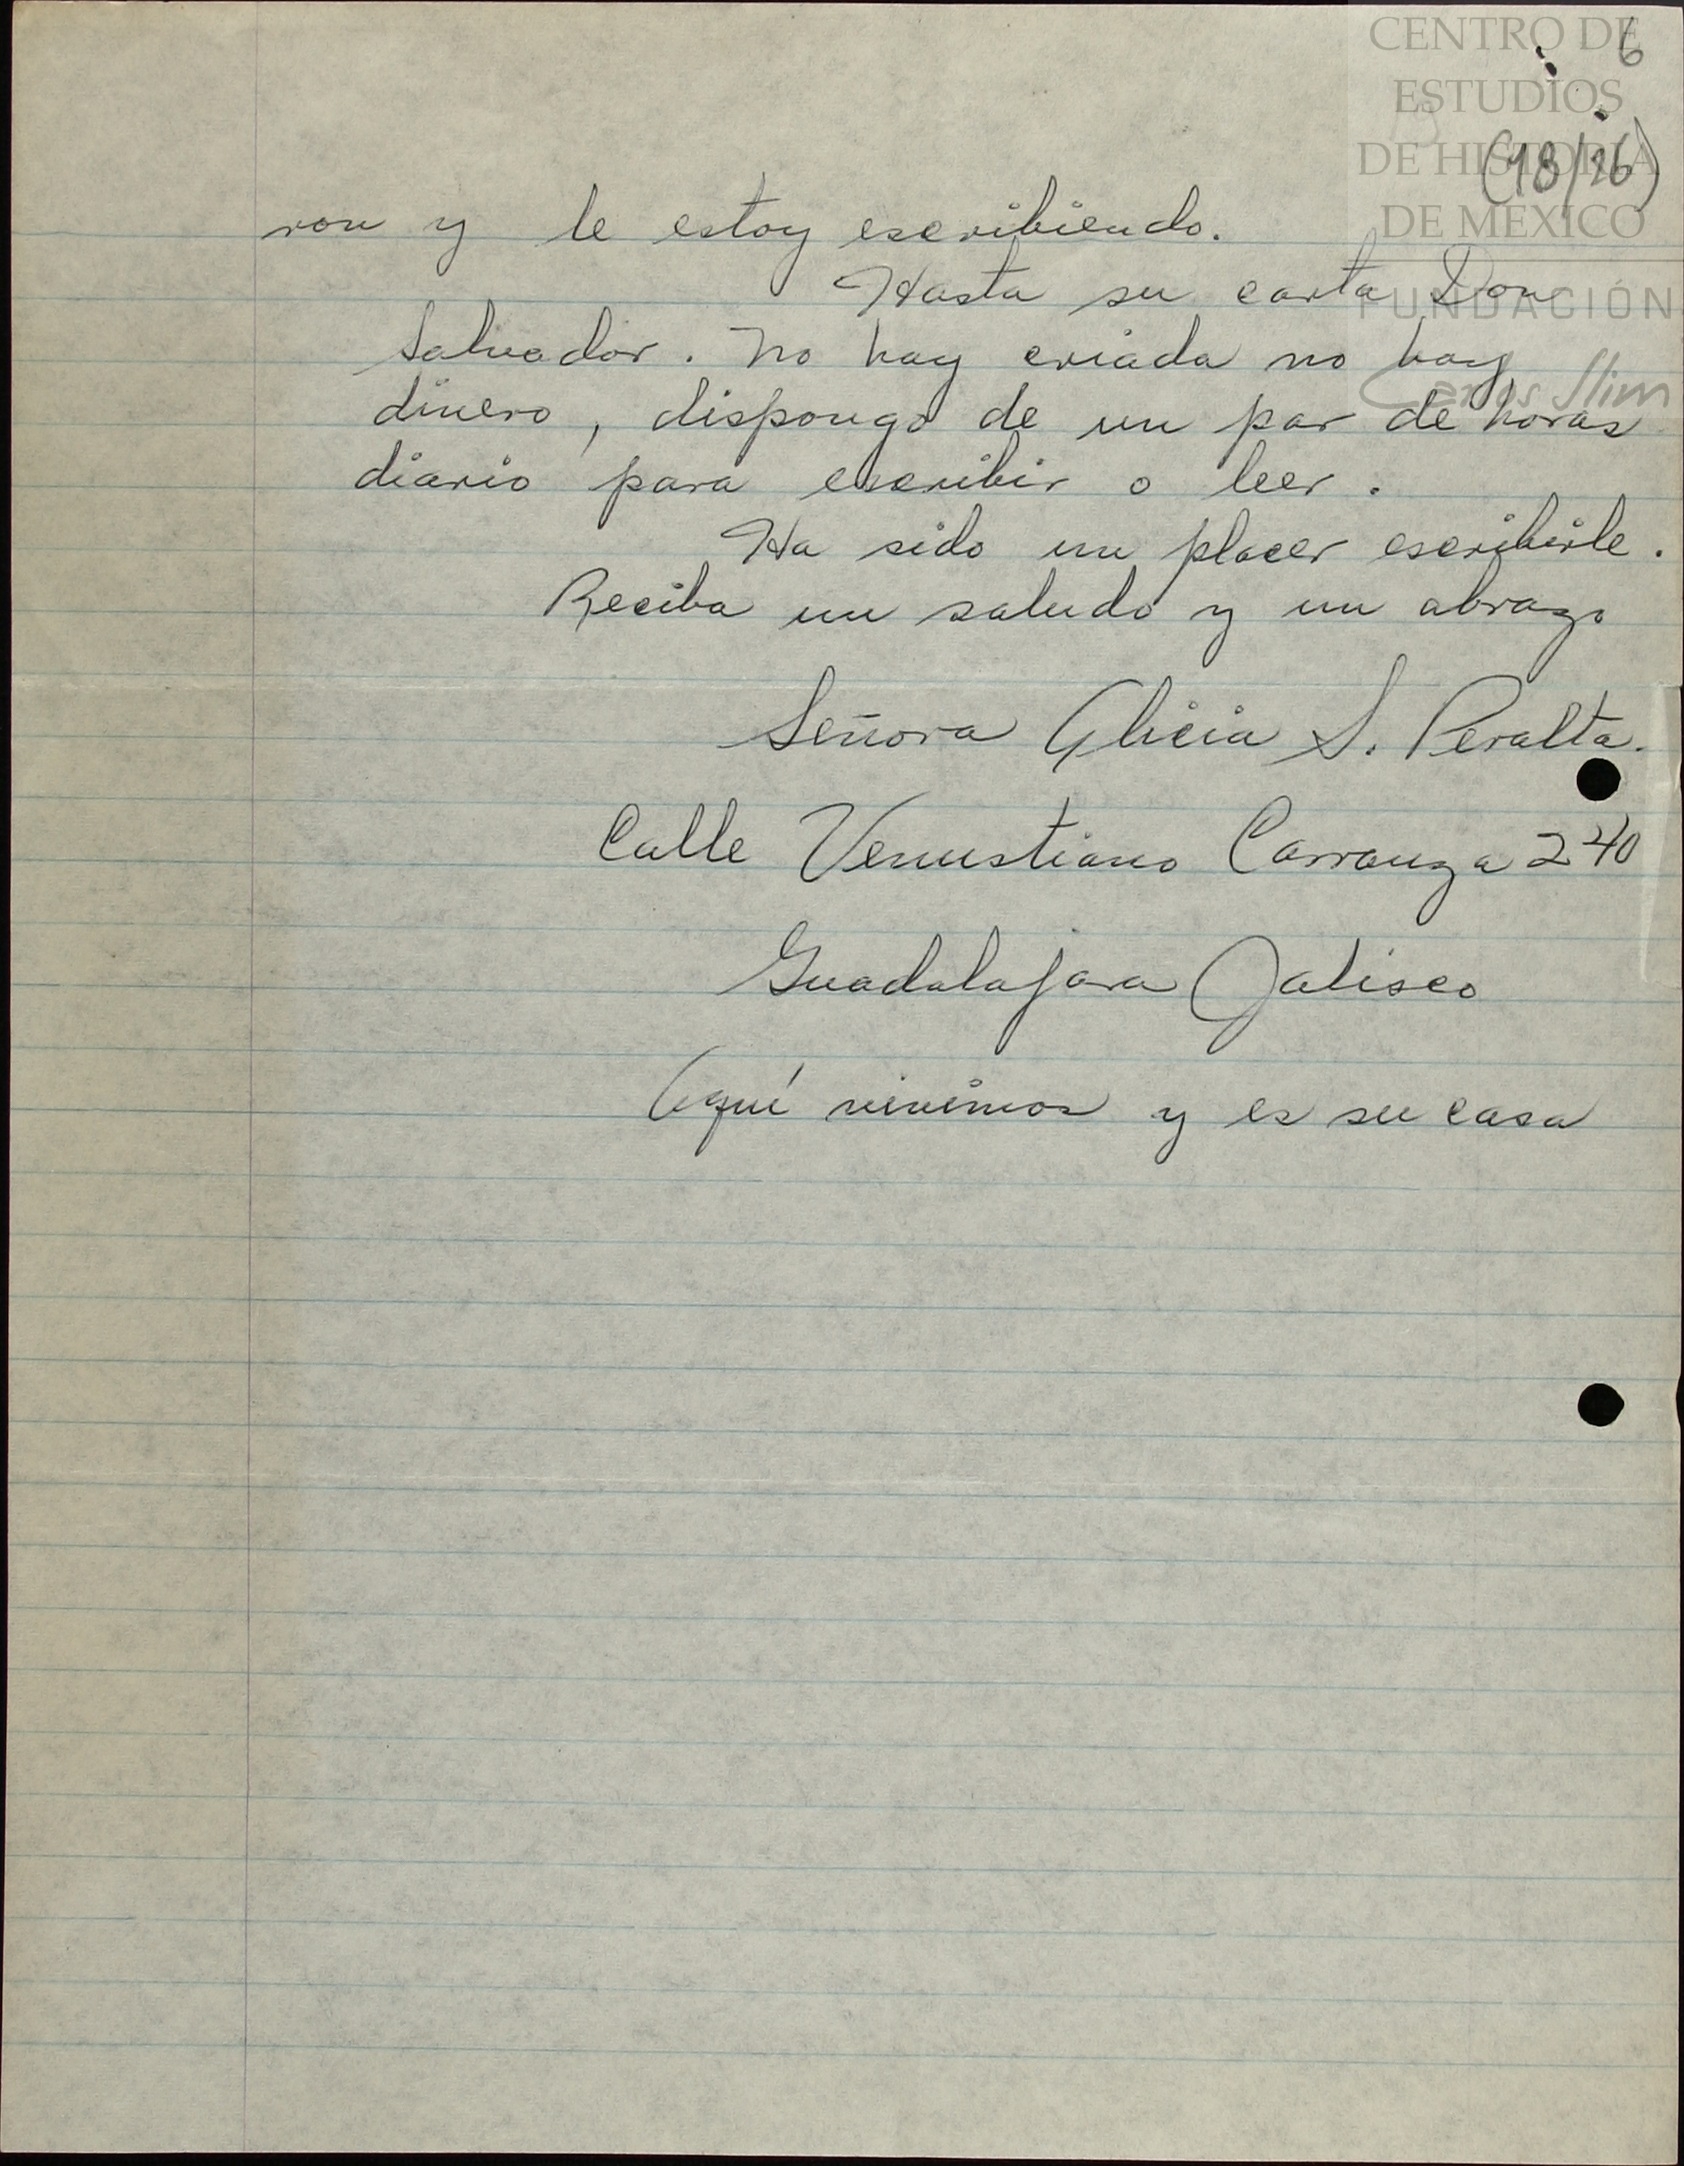 6
(18/26)
CENTRO DE
ESTUDIOS
DE HISTORIA
DE MEXICO
FUNDACIÓN
Carlos Slim
ron y le estoy escribiendo.
Hasta su carta Don
Salvador. No hay criada no hay
dinero, dispongo de un par de horas
diario para escribir o leer.
Ha sido un placer escribirle.
Reciba un saludo y un abrazo
Señora Alicia S. Peralta.
Calle Venustiano Carranza 240
Guadalajara Jalisco
Aquí vivimos y es su casa